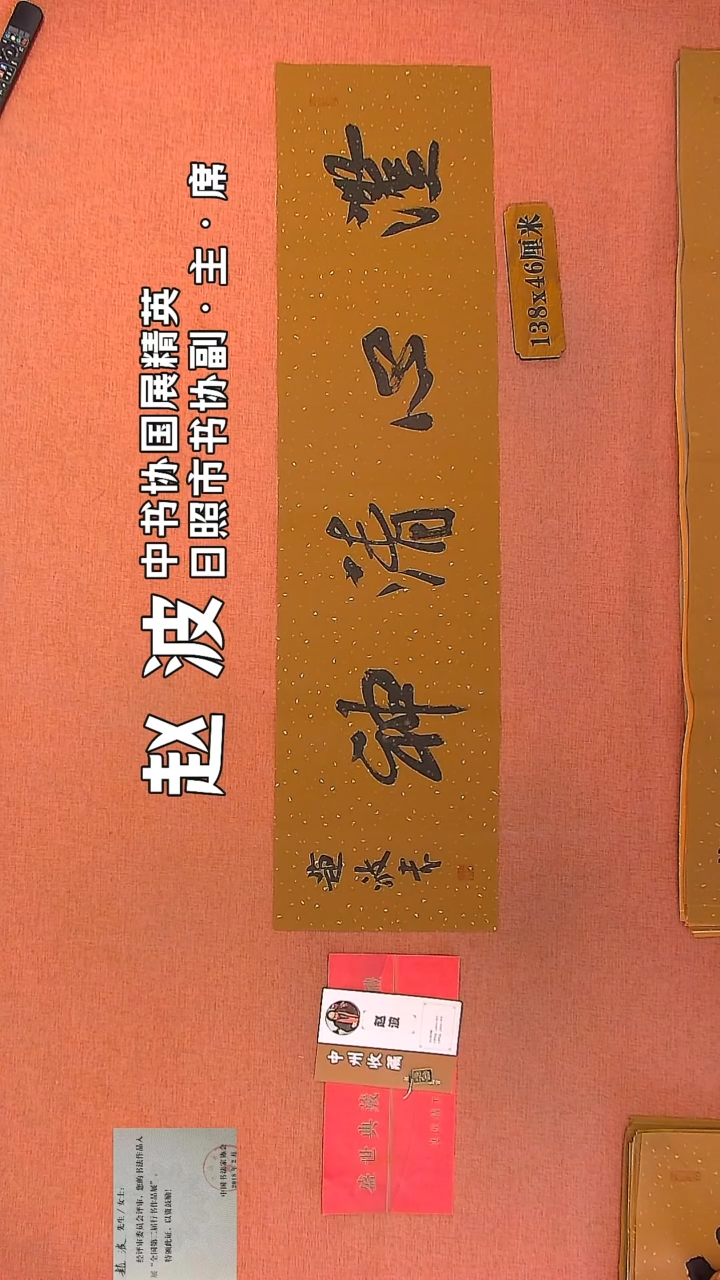 赵波
中书协国展精英
日照市书协副·主·席
心清神
波书
138x46厘米
赵波
中州收藏
盛世典藏
赵波 先生/女士:
经评审委员会评审，您的书法作品入
展“全国第二届行书作品展”。
特颁此证，以资鼓励!
中国书法家协会